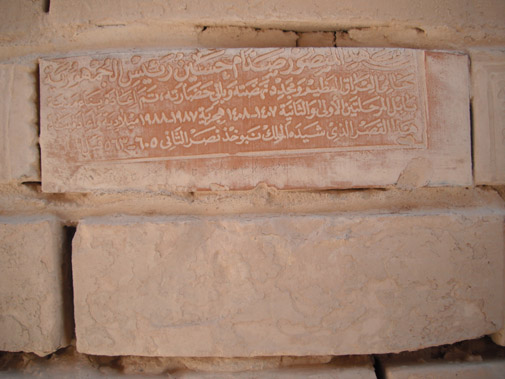 المنصور صدام حسين رئيس الجمهورية
حامي العراق العظيم ومجدد نهضته وباني حضارته، تم إعادة
بناء المرحلتين الأولى والثانية ١٤٠٧-١٤٠٨ هجرية ١٩٨٧-١٩٨٨ ميلادية
القصر الذي شيده الملك نبوخذ نصر الثاني ٦٠٥-٥٦٣